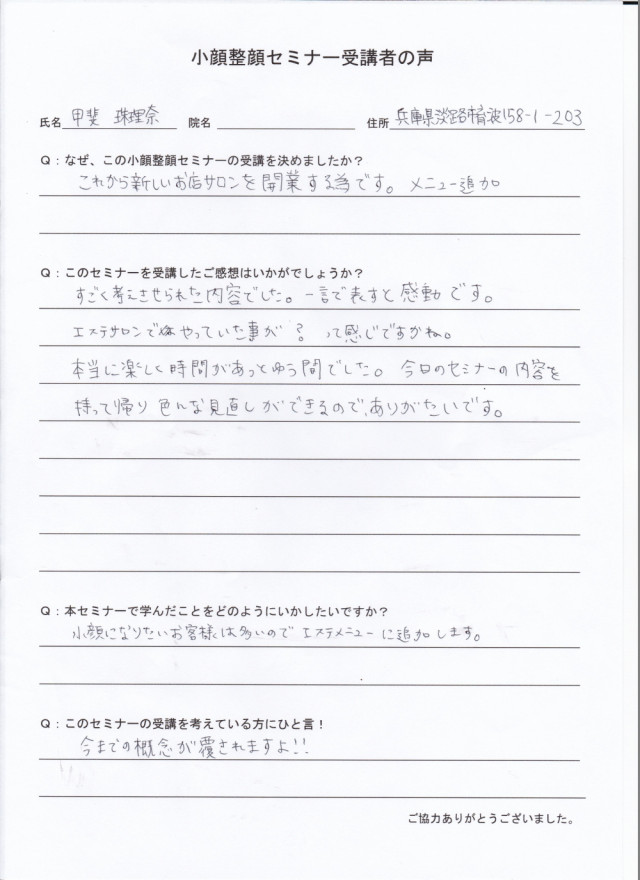 小顔整顔セミナー受講者の声
氏名 甲斐 珠理奈 院名 住所 兵庫県淡路市育波158-1-203
Q：なぜ、この小顔整顔セミナーの受講を決めましたか？
これから新しいお店サロンを開業する為です。 メニュー追加
Q：このセミナーを受講したご感想はいかがでしょうか？
すごく考えさせられた内容でした。一言で表すと感動です。
エステサロンでやっていた事が？ って感じですかね。
本当に楽しく時間があっとゆう間でした。 今日のセミナーの内容を
持って帰り 色んな見直しができるので、ありがたいです。
Q：本セミナーで学んだことをどのようにいかしたいですか？
小顔になりたいお客様は多いのでエステメニューに追加します。
Q：このセミナーの受講を考えている方にひと言！
今までの概念が覆されますよ!!
ご協力ありがとうございました。